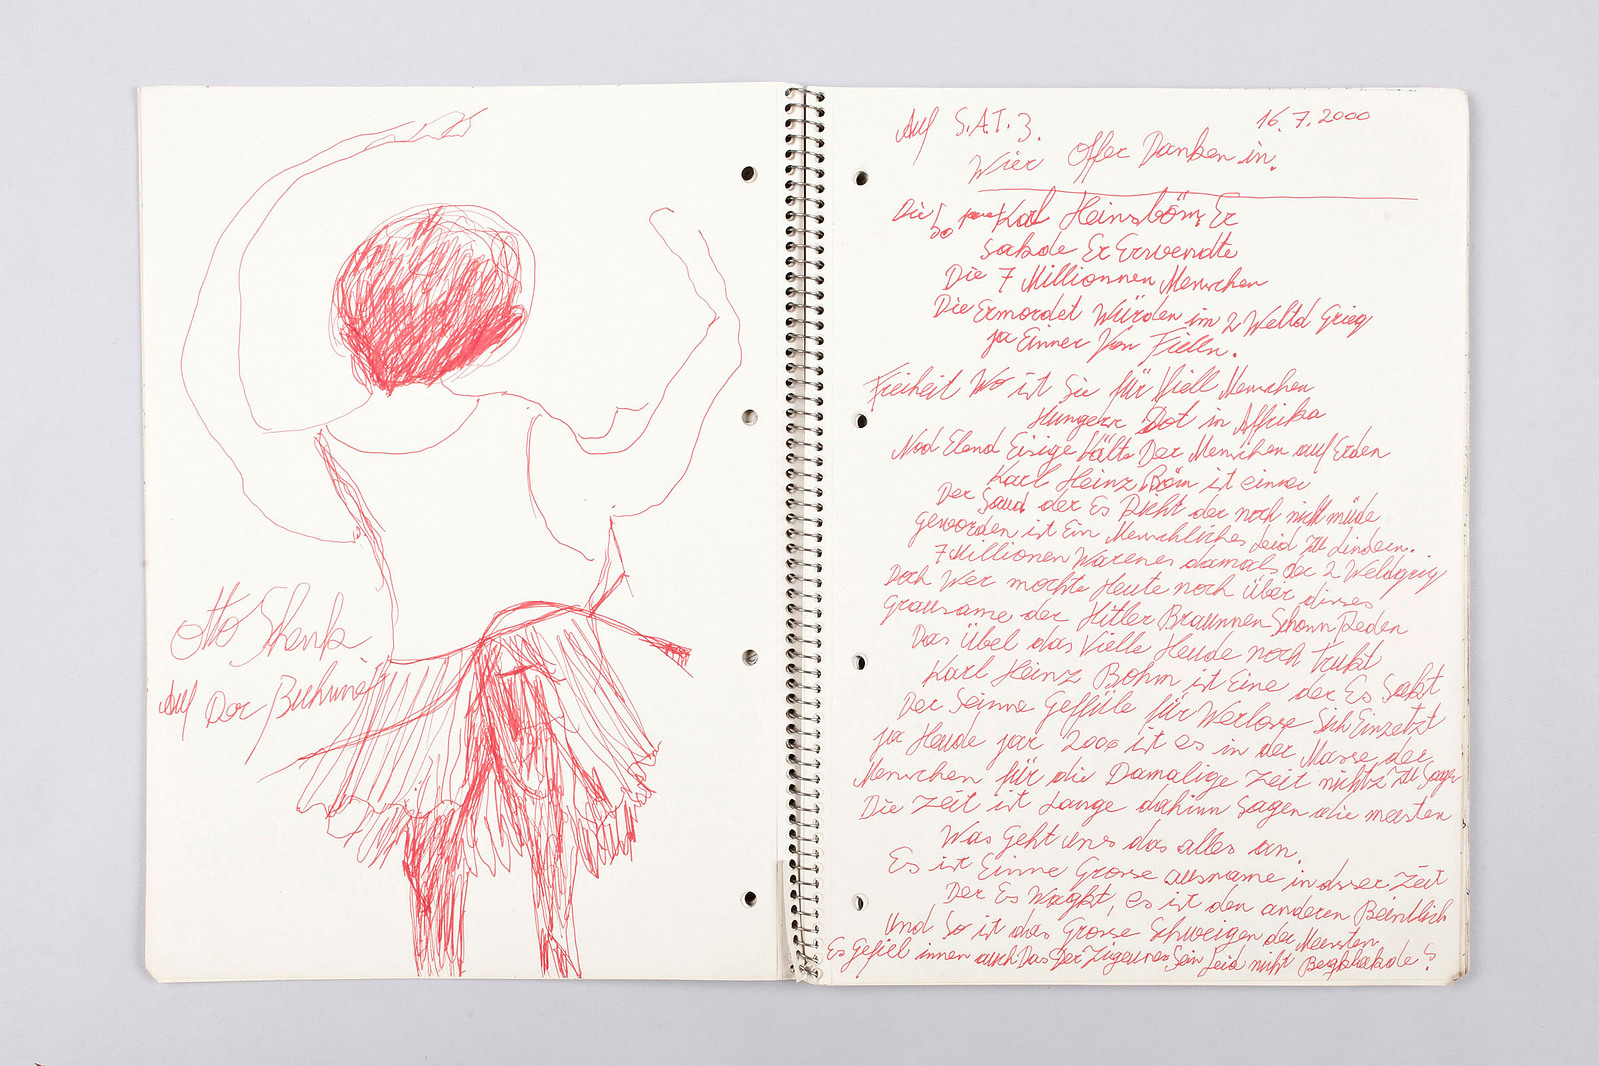 Otto Shenk
Auf Der Buhine
Auf S.A.T. 3. 16.7.2000
Wier Offer Danken in.
Die so Karl Heinzböm Er
sakde Er Erwendte
Die 7 Millionnen Menschen
Die Ermordet Würden im 2 Weltd Grieg
ja Einner Von Fielln.
Freiheit Wo ist Sie für Viell Menschen
Hungern Dot in Affrika
Nod Elend Eisige Kälte Der Menschen auf Erden
Karl Heinz Böm ist einer
Der Saud der Es Dicht der noch nicht müde
geworden ist Ein Menschliches Leid zu Lindern.
7 Millionen Warenes damals der 2 Weldgrig
Doch Wer mochte Heute noch über disses
Grausame der Hitler Braunnen Schonn Reden
Das Übel das Vielle Heude noch Trukt
Karl Heinz Bohm ist Eine der Es Sakt
Der Seinne Gefüle für Werlose Sich Einzetzt
ja Heude jar 2000 ist es in der Masse der
Menschen für die Damalige Zeit nichtz zu Sagen
Die Zeit ist Lange dahinn Sagen die meesten
Was geht uns das alles an.
Es ist Einne Grosse ausname in dsser Zeit
Der Es Wagkt, es ist den anderen Beintlich
Und So ist das Grosse Schweigen der Meersten
Es Gefiel innen auch Das Der Zigeuner Sein Leid nicht Begklakde?